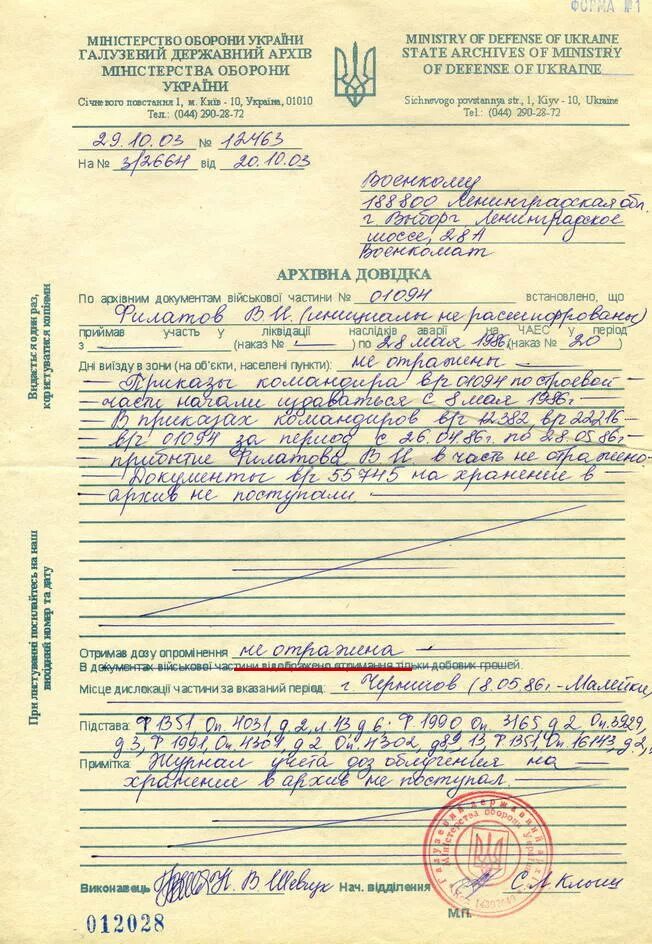 ФОРМА №1
МІНІСТЕРСТВО ОБОРОНИ УКРАЇНИ
ГАЛУЗЕВИЙ ДЕРЖАВНИЙ АРХІВ
МІНІСТЕРСТВА ОБОРОНИ
УКРАЇНИ
Січневого повстання 1, м. Київ - 10, Україна, 01010
Тел.: (044) 290-28-72
MINISTRY OF DEFENSE OF UKRAINE
STATE ARCHIVES OF MINISTRY
OF DEFENSE OF UKRAINE
Sichnevogo povstannya str., 1, Kyiv - 10, Ukraine
Tel.: (044) 290-28-72
29.10.03 № 12463
На № 3/2664 від 20.10.03
Военкому
188800 Ленинградская обл.
г Выборг, Ленинградское
шоссе, 28А
Военкомат
АРХІВНА ДОВІДКА
По архівним документам військової частини № 01094 встановлено, що
Филатов В.И. (инициалы не расшифрованы)
приймав участь у ліквідації наслідків аварії на ЧАЕС у період
з — (наказ № — ) по 28 мая 1986 (наказ № 20 )
Дні виїзду в зони (на об'єкти, населені пункти): не отражены —
— Приказы командира в/ч 01094 по строевой
— части начали издаваться с 8 мая 1986г —
— В приказах командиров в/ч 12382, в/ч 22216 —
— в/ч 01094 за период с 26.04.86г. по 28.05.86г —
— прибытие Филатова В.И. в часть не отражено.
— Документы в/ч 55745 на хранение в —
— архив не поступали. —
Отримав дозу опромінення не отражена —
В документах військової частини відображено отримання тільки добових грошей.
Місце дислокації частини за вказаний період: г Чернигов (8.05.86г-Малейки)
Підстава: Ф 1351 Оп. 4031, д.2, л. 43 д 6. Ф 1990 Оп. 3165 д 2 Оп. 3929,
д 3, Ф 1991, Оп. 4301, д 2, Оп. 4302, 13, Ф 1351, Оп. 16143, д 2,
Примітка: Журнал учета доз облучения на —
хранение в архив не поступал. —
Виконавець В Шевчук Нач. відділення С.А.
М.П.
012028
Видається один раз,
користуватися копіями
При листуванні посилайтесь на наш
вихідний номер та дату
Галузевий державний архів
Міністерства оборони України